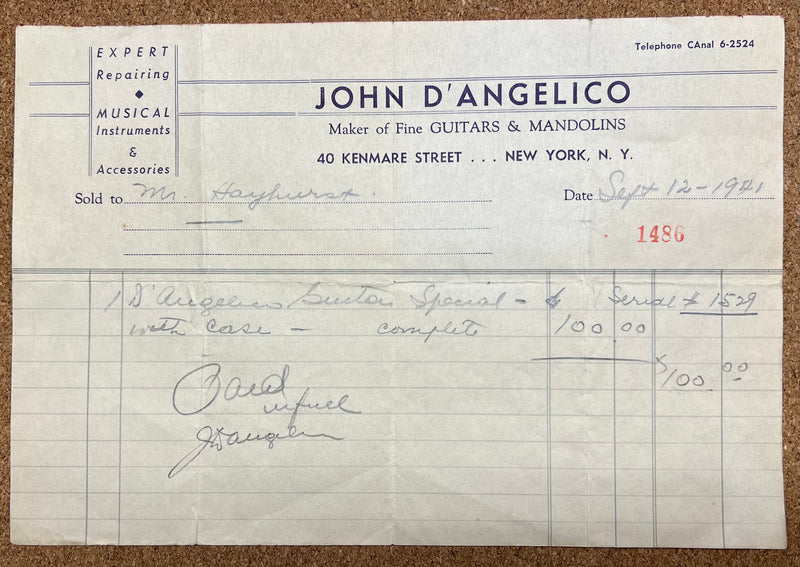 Telephone CAnal 6-2524
EXPERT
Repairing
MUSICAL
Instruments
&
Accessories
JOHN D'ANGELICO
Maker of Fine GUITARS & MANDOLINS
40 KENMARE STREET . . . NEW YORK, N. Y.
Sold to Mr. Hayhurst. Date Sept 12-1941
1486
1 D'Angelico Guitar Special - $ Serial # 1529
with case - complete 100 00
$100.00
Paid
in full
J D'Angelico